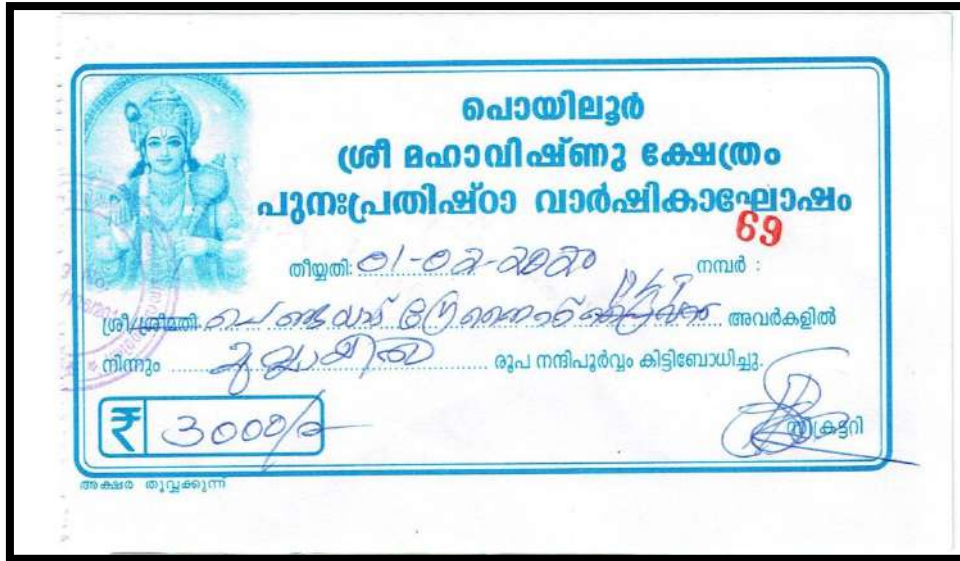 പൊയിലൂർ
ശ്രീ മഹാവിഷ്ണു ക്ഷേത്രം
പുനഃപ്രതിഷ്ഠാ വാർഷികാഘോഷം
69
തീയ്യതി: 01-02-2020 നമ്പർ :
ശ്രീ/ശ്രീമതി അവർകളിൽ
നിന്നും മൂവ്വായിരം രൂപ നന്ദിപൂർവ്വം കിട്ടിബോധിച്ചു.
₹ 3000/-
സെക്രട്ടറി
അക്ഷര തൂവ്വക്കുന്ന്